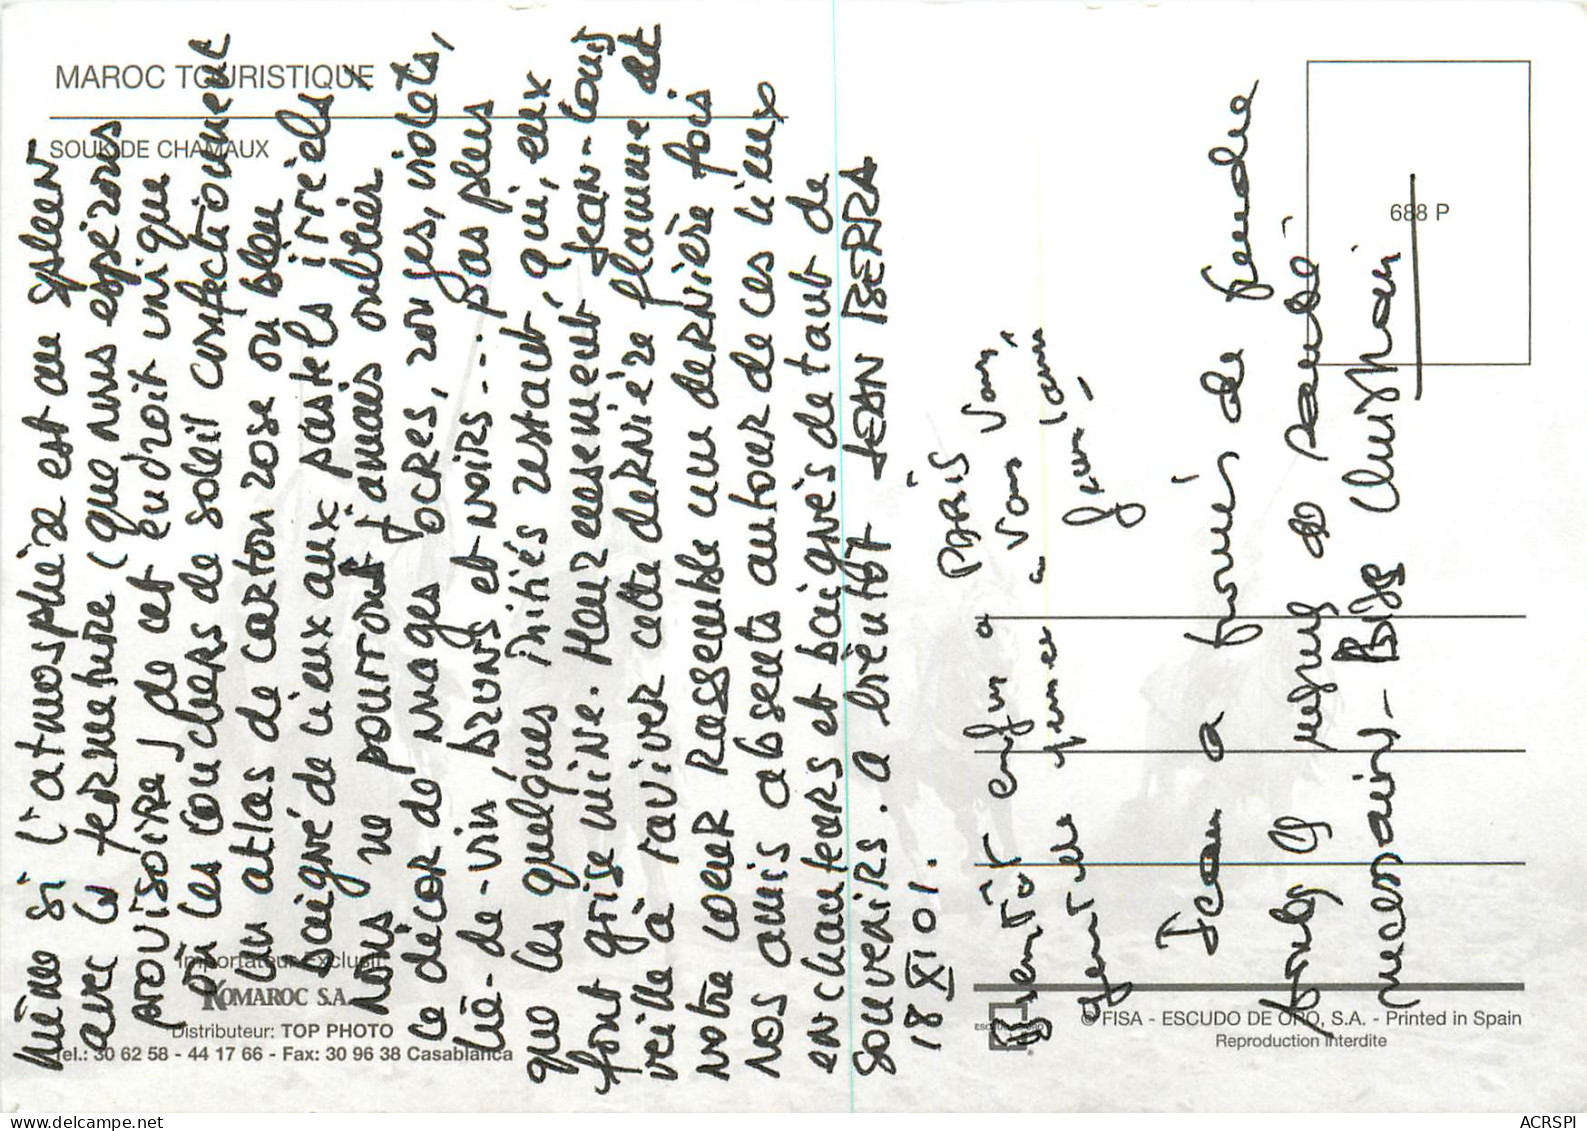 MAROC TOURISTIQUE
SOUK DE CHAMAUX
688 P
Importateur Exclusif:
KOMAROC S.A.
Distributeur: TOP PHOTO
Tel.: 30 62 58 - 44 17 66 - Fax: 30 96 38 Casablanca
© FISA - ESCUDO DE ORO, S.A. - Printed in Spain
Reproduction Interdite
Même si l'atmosphère est au spleen
avec la fermeture (que nous espérons
provisoire) de cet endroit unique
où les couchers de soleil confectionnent
un atlas de carton rose ou bleu
baigné de cieux aux pastels irréels,
nous ne pourront jamais oublier
ce décor de nuages ocres, rouges, violets,
lie-de-vin, bruns et noirs... pas plus
que les quelques initiés restant, qui, eux
font grise mine. Heureusement Jean-Louis
veille à raviver cette dernière flamme et
notre coeur rassemble une dernière fois
nos amis absents autour de ces lieux
enchanteurs et baignés de tant de
souvenirs. A bientôt JEAN BERRA
18 XI 01.
Bientôt enfin a PARIS
Jean a
de
si nécessaire - Bise Christian
ACRSPI